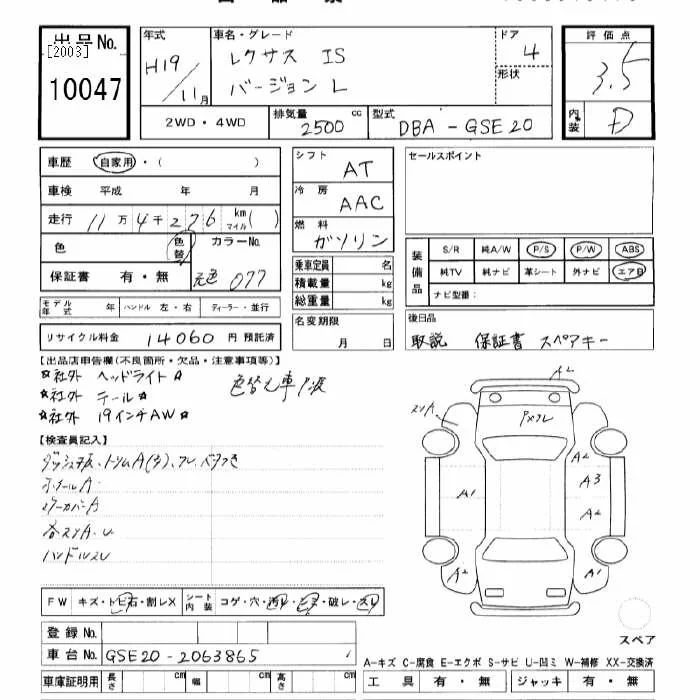 出品No.
[2003]
10047
年式
H19/11月
車名・グレード
レクサス IS
バージョン L
ドア
4
形状
2WD・4WD
排気量 2500 cc
型式 DBA-GSE20
評価点
3.5
内装 D
車歴 自家用・( )
車検 平成 年 月
走行 11万4千276 km マイル ( )
色 色替 カラーNo.
保証書 有・無 元色 077
モデル年式 年 ハンドル 左・右 ディーラー・並行
リサイクル料金 14060 円 預託済
シフト AT
冷房 AAC
燃料 ガソリン
乗車定員 名
積載量 kg
総重量 kg
名変期限
月 日
セールスポイント
装備品
S/R 純A/W P/S P/W ABS
純TV 純ナビ 革シート 外ナビ エアB
ナビ型番:
後日品
取説 保証書 スペアキー
【出品店申告欄(不良箇所・欠品・注意事項等)】
☆社外 ヘッドライト☆
☆社外 テール☆
☆社外 19インチAW☆
色替え車
【検査員記入】
ホイールA
ハンドルスレ
FW キズ・トビ石・割レX シート内装 コゲ・穴・汚レ・破レ・スレ
登録No.
車台No. GSE20-2063865
車庫証明用 長さ cm 幅 cm 高さ cm
A2
スリA
A2
A3
A2
A1
A2
A1
スペア
A-キズ C-腐食 E-エクボ S-サビ U-凹ミ W-補修 XX-交換済
工具 有・無 ジャッキ 有・無